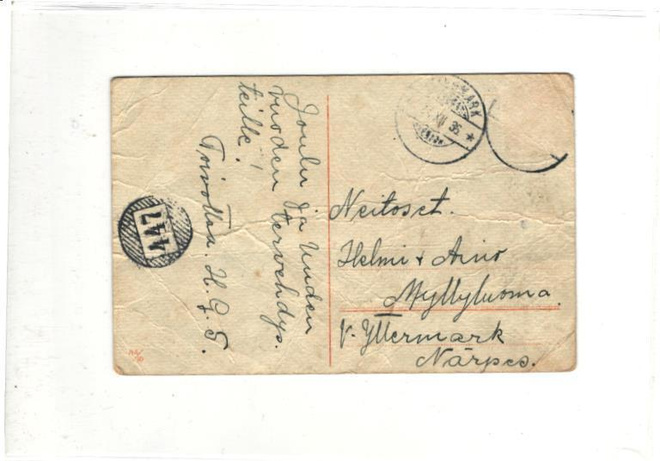 Joulu ja Uuden
vuoden tervehdys.
teille!
Toivottaa. H. G. S.
447
XII 35
Neitoset.
Helmi + Aino
Myllyluoma.
V. Yttermark
Närpes.